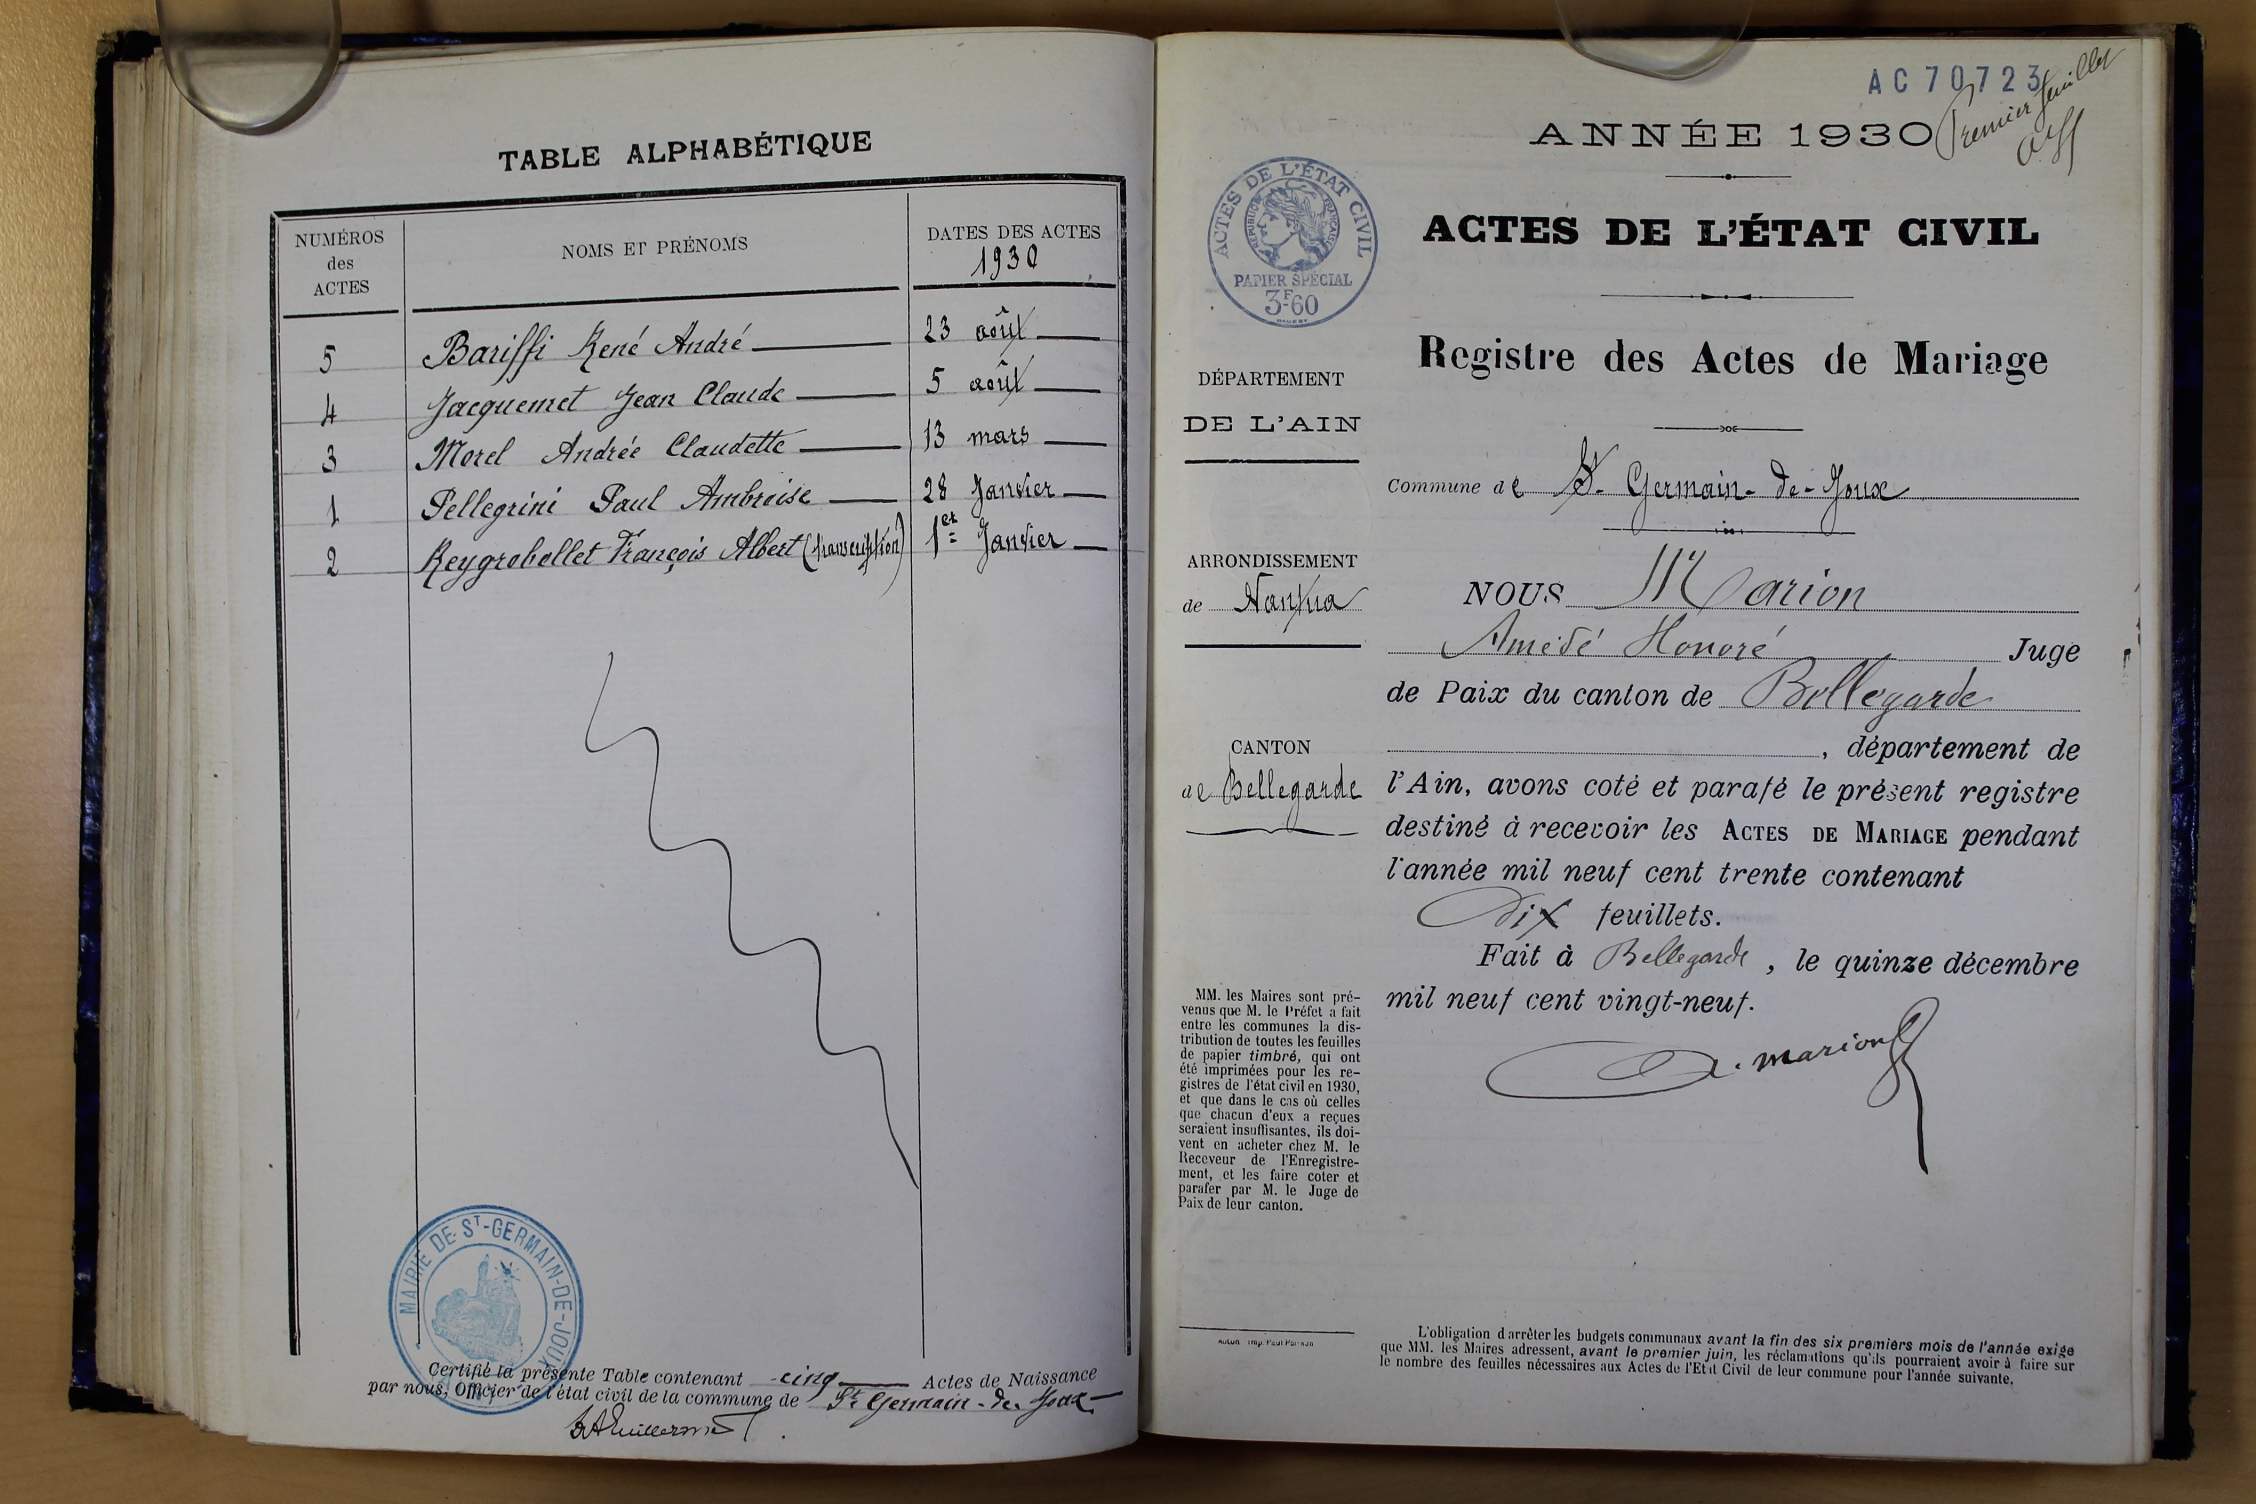 TABLE ALPHABÉTIQUE
NUMÉROS
des
ACTES
NOMS ET PRÉNOMS
DATES DES ACTES
1930
5 Bariffi René André 23 août
4 Jacquemet Jean Claude 5 août
3 Morel Andrée Claudette 13 mars
1 Pellegrini Paul Ambroise 28 Janvier
2 Reygrobellet François Albert (transcription) 1er Janvier
MAIRIE DE ST-GERMAIN-DE-JOUX
Certifié la présente Table contenant cinq Actes de Naissance
par nous, Officier de l'état civil de la commune de St Germain-de-Joux
AC 70723
Premier feuillet
ANNÉE 1930
ACTES DE L'ÉTAT CIVIL
RÉPUBLIQUE FRANÇAISE
PAPIER SPÉCIAL
3F60
ACTES DE L'ÉTAT CIVIL
Registre des Actes de Mariage
DÉPARTEMENT
DE L'AIN
Commune de St-Germain-de-Joux
ARRONDISSEMENT
de Nantua
NOUS Marion
Amédé Honoré Juge
de Paix du canton de Bellegarde
, département de
CANTON
de Bellegarde
l'Ain, avons coté et parafé le présent registre
destiné à recevoir les ACTES DE MARIAGE pendant
l'année mil neuf cent trente contenant
dix feuillets.
Fait à Bellegarde, le quinze décembre
mil neuf cent vingt-neuf.
A. Marion
MM. les Maires sont pré-
venus que M. le Préfet a fait
entre les communes la dis-
tribution de toutes les feuilles
de papier timbré, qui ont
été imprimées pour les re-
gistres de l'état civil en 1930,
et que dans le cas où celles
que chacun d'eux a reçues
seraient insuffisantes, ils doi-
vent en acheter chez M. le
Receveur de l'Enregistre-
ment, et les faire coter et
parafer par M. le Juge de
Paix de leur canton.
L'obligation d'arrêter les budgets communaux avant la fin des six premiers mois de l'année exige
que MM. les Maires adressent, avant le premier juin, les réclamations qu'ils pourraient avoir à faire sur
le nombre des feuilles nécessaires aux Actes de l'Etat Civil de leur commune pour l'année suivante.